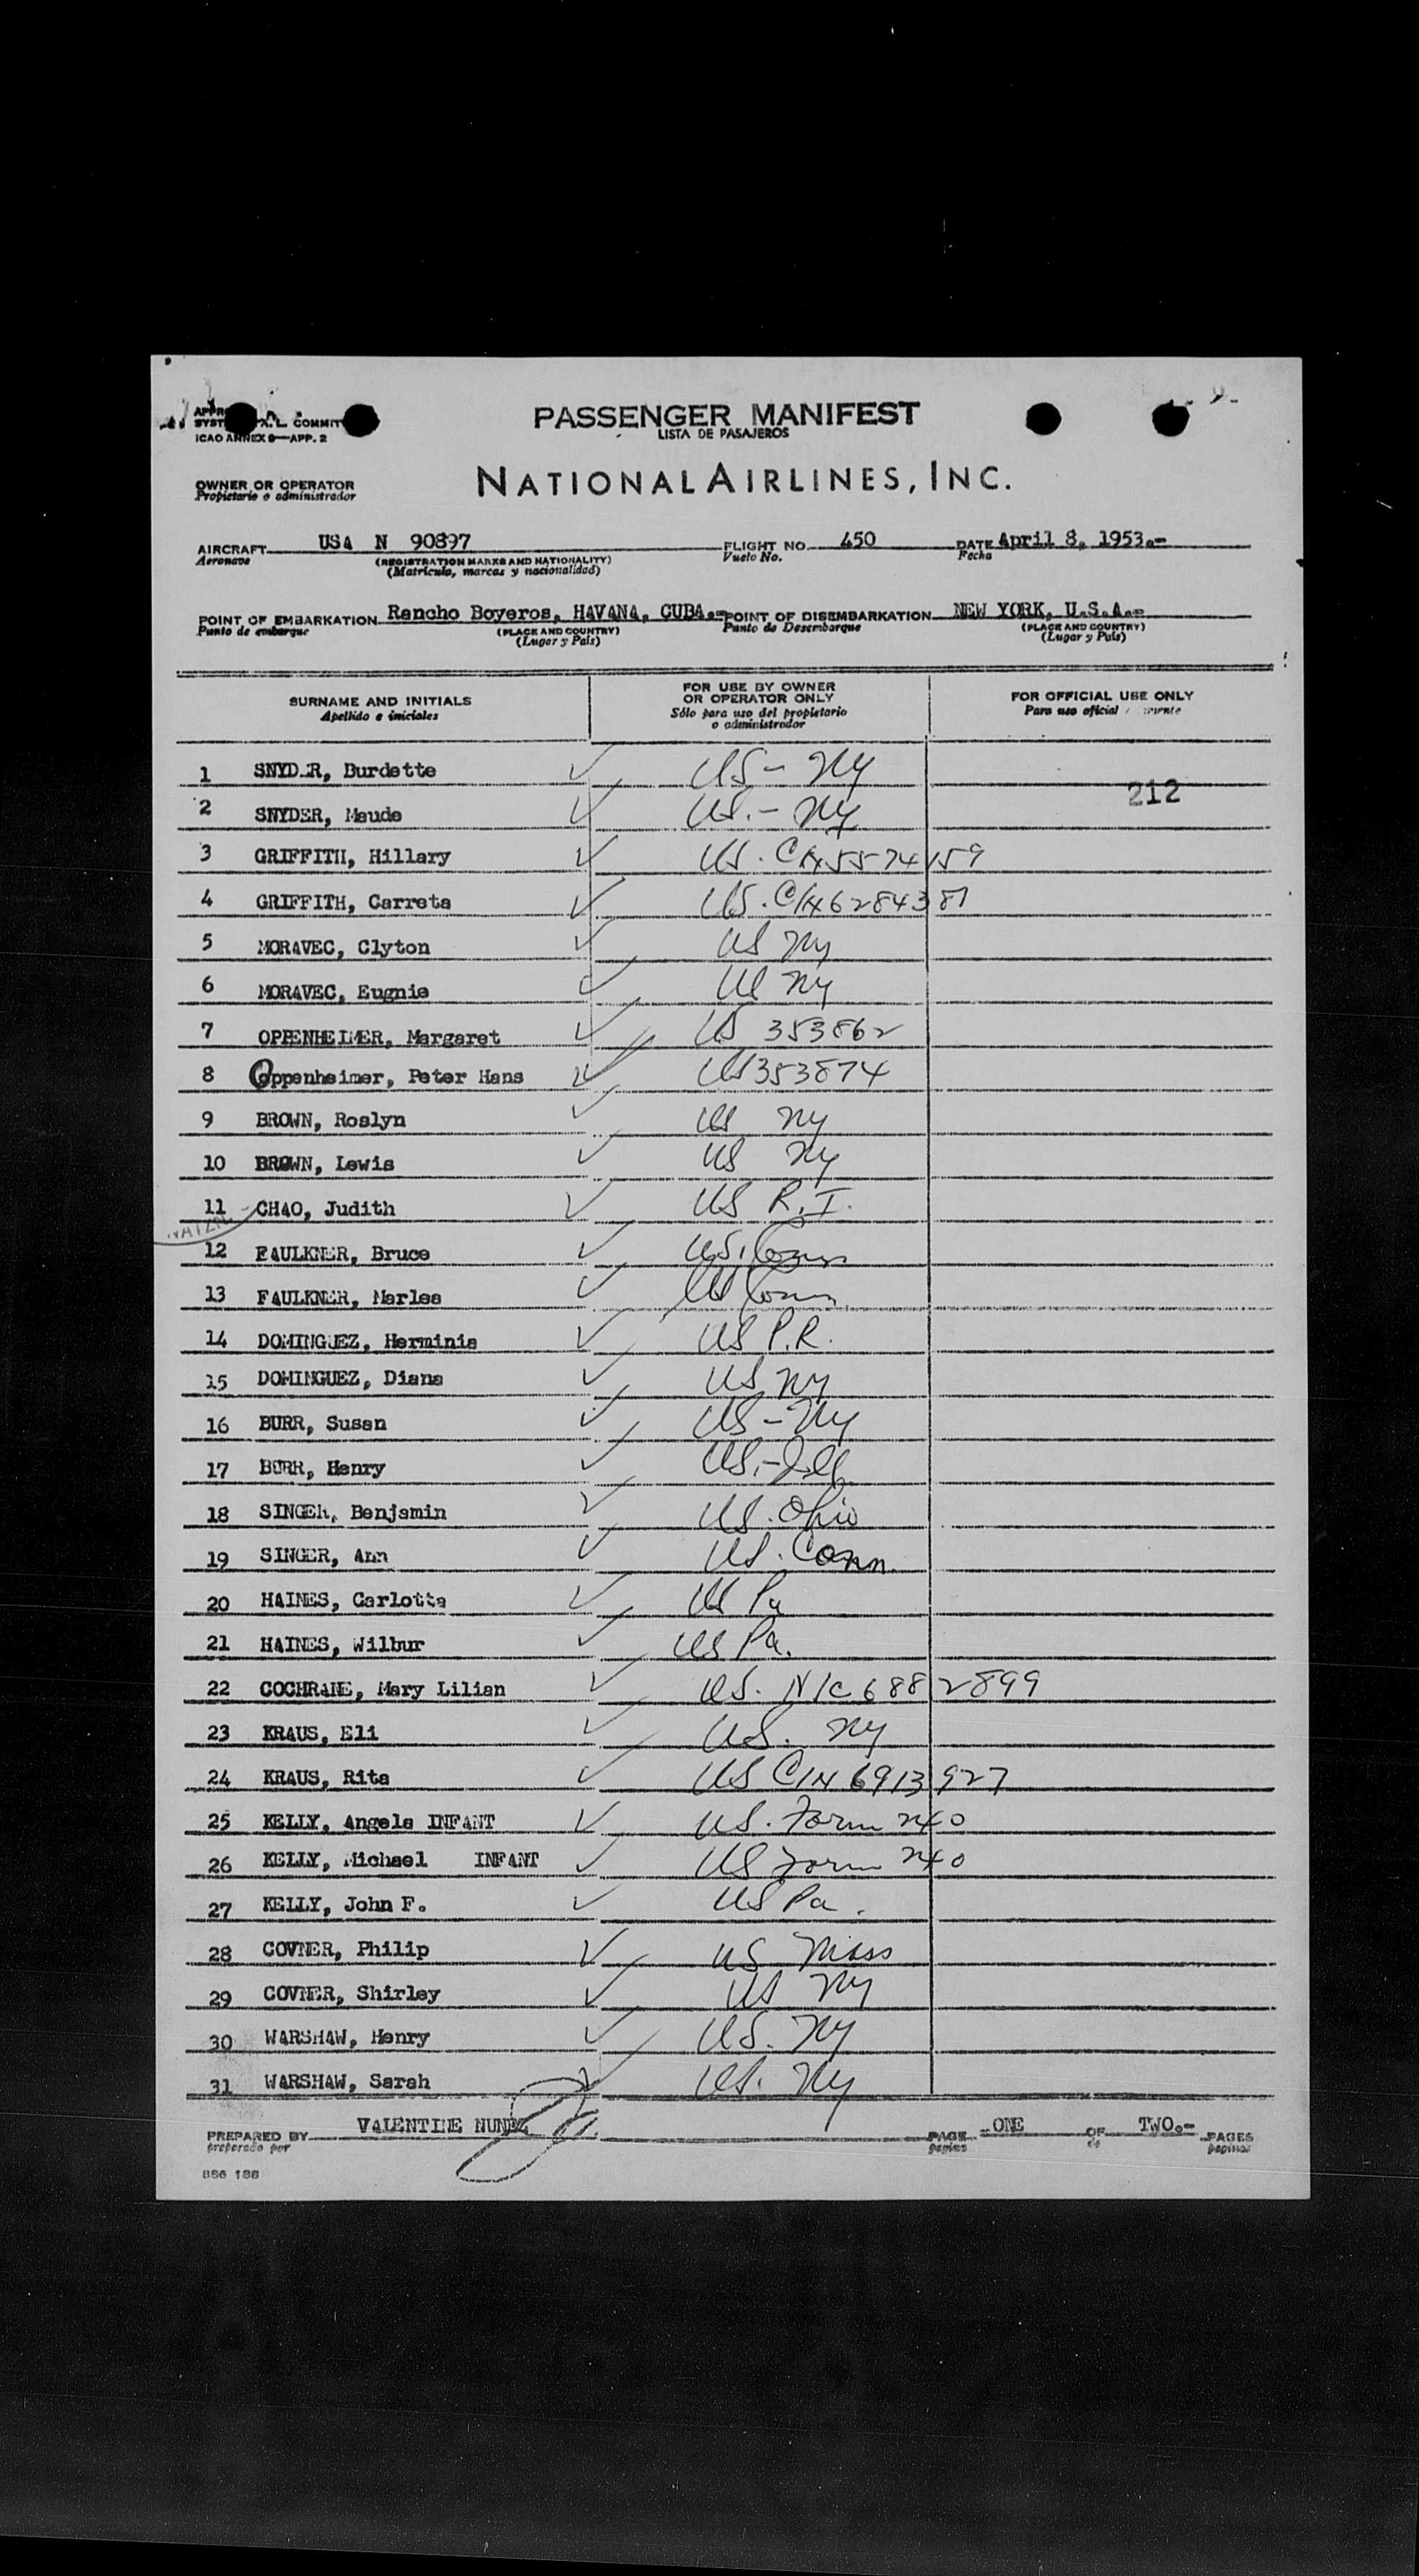 PASSENGER MANIFEST
LISTA DE PASAJEROS
ICAO ANNEX 9—APP. 2
OWNER OR OPERATOR
Propietario o administrador
NATIONAL AIRLINES, INC.
AIRCRAFT USA N 90897 FLIGHT NO. 450 DATE April 8, 1953.-
Aeronave (REGISTRATION MARKS AND NATIONALITY) Vuelo No. Fecha
(Matrícula, marcas y nacionalidad)
POINT OF EMBARKATION Rancho Boyeros, HAVANA, CUBA.- POINT OF DISEMBARKATION NEW YORK, U.S.A.-
Punto de embarque (PLACE AND COUNTRY) Punto de Desembarque (PLACE AND COUNTRY)
(Lugar y País) (Lugar y País)
SURNAME AND INITIALS
Apellido e iniciales
FOR USE BY OWNER
OR OPERATOR ONLY
Sólo para uso del propietario
o administrador
FOR OFFICIAL USE ONLY
Para uso oficial
1 SNYDER, Burdette US - NY
212
2 SNYDER, Maude US. - NY
3 GRIFFITH, Hillary US. C/N 5574159
4 GRIFFITH, Carreta US. C/N 6284381
5 MORAVEC, Clyton US NY
6 MORAVEC, Eugnie US NY
7 OPPENHEIMER, Margaret US 353862
8 Oppenheimer, Peter Hans US 353874
9 BROWN, Roslyn US NY
10 BROWN, Lewis US NY
11 CHAO, Judith US R.I.
12 FAULKNER, Bruce US. Conn
13 FAULKNER, Marlea US Conn
14 DOMINGUEZ, Herminia US P.R.
15 DOMINGUEZ, Diana US NY
16 BURR, Susan US - NY
17 BURR, Henry US. - Ill
18 SINGER, Benjamin US. Ohio
19 SINGER, Ann US. Conn.
20 HAINES, Carlotta US Pa
21 HAINES, Wilbur US Pa.
22 COCHRANE, Mary Lilian US. N/C 6882899
23 KRAUS, Eli US. NY
24 KRAUS, Rita US C/N 6913927
25 KELLY, Angela INFANT US. Form 240
26 KELLY, Michael INFANT US Form 240
27 KELLY, John F. US Pa.
28 COVNER, Philip US Mass
29 COVNER, Shirley US NY
30 WARSHAW, Henry US. NY
31 WARSHAW, Sarah US. NY
PREPARED BY VALENTINE NUNEZ PAGE ONE OF TWO.- PAGES
preparado por página de páginas